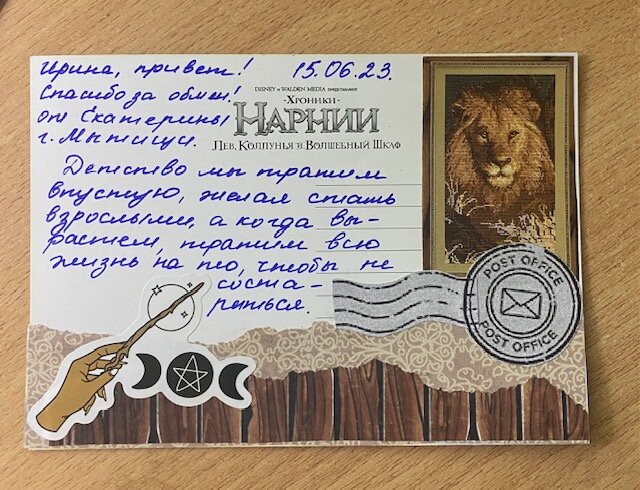 Ирина, привет! 15.06.23.
Спасибо за обмен!
от Екатерины
г. Мытищи.
DISNEY и WALDEN MEDIA представляют
·ХРОНИКИ·
НАРНИИ
ЛЕВ, КОЛДУНЬЯ И ВОЛШЕБНЫЙ ШКАФ
Детство мы тратим
впустую, желая стать
взрослыми, а когда вы-
растем, тратим всю
жизнь на то, чтобы не
соста-
риться.
POST OFFICE
POST OFFICE